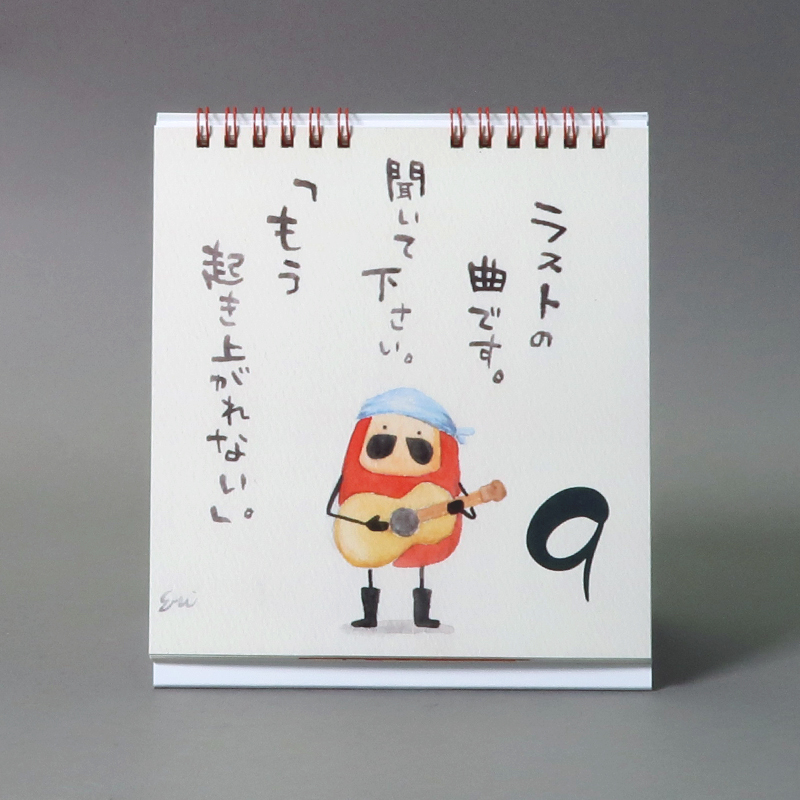 ラストの
曲です。
聞いて
下さい。
「もう
起き上がれない」。
9
Eri